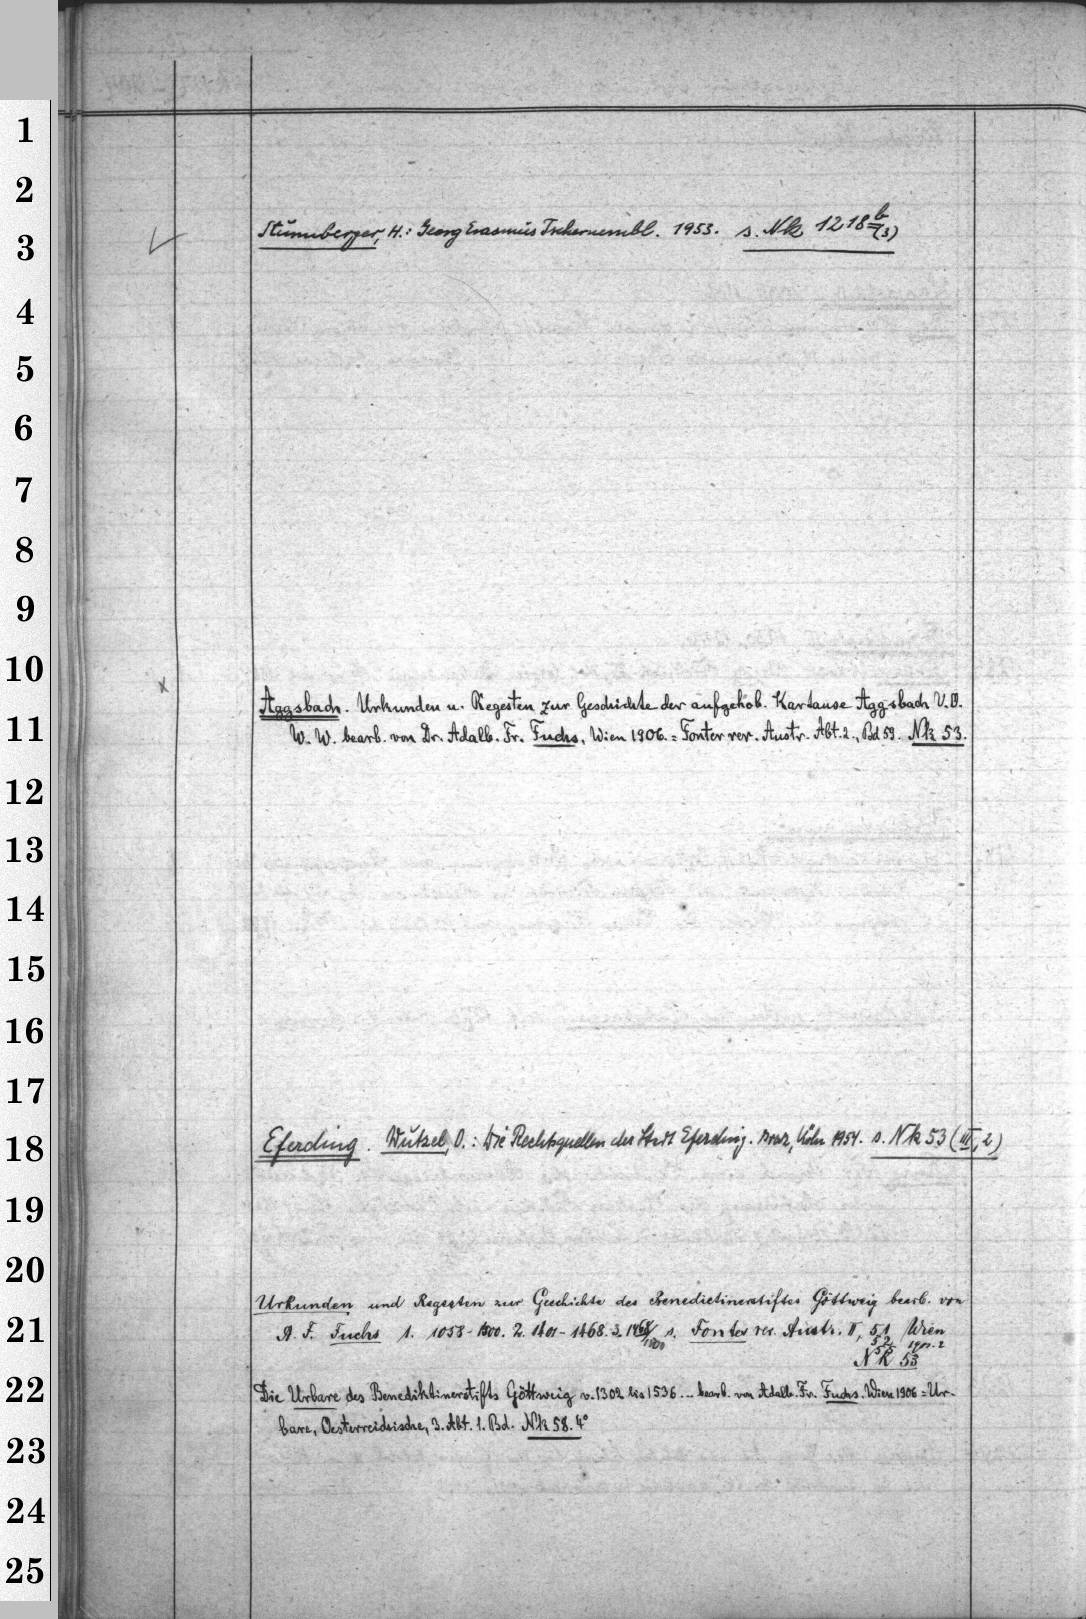 1
2
3
Sturmberger, H.: Georg Erasmus Tschernembl. 1953. s. Nk 1218 b (3)
4
5
6
7
8
9
10
11
Aggsbach. Urkunden u. Regesten zur Geschichte der aufgehob. Kartause Aggsbach V.O.
W. W. bearb. von Dr. Adalb. Fr. Fuchs, Wien 1906. = Fontes rer. Austr. Abt. 2., Bd 59. Nk 53.
12
13
14
15
16
17
18
Eferding. Wutzel, O.: Die Rechtsquellen der Stadt Eferding. Graz, Köln 1954. s. Nk 53 (III, 2)
19
20
Urkunden und Regesten zur Geschichte des Benedictinerstiftes Göttweig bearb. von
21
A. F. Fuchs 1. 1058-1400. 2. 1401-1468. 3. 1468/1500 s. Fontes rer. Austr. II, 51 Wien
52 1901-2
Nk 53
22
Die Urbare des Benediktinerstifts Göttweig v. 1302 bis 1536... bearb. von Adalb. Fr. Fuchs. Wien 1906 = Ur-
bare, Oesterreichische, 3. Abt. 1. Bd. Nk 58. 4°
23
24
25